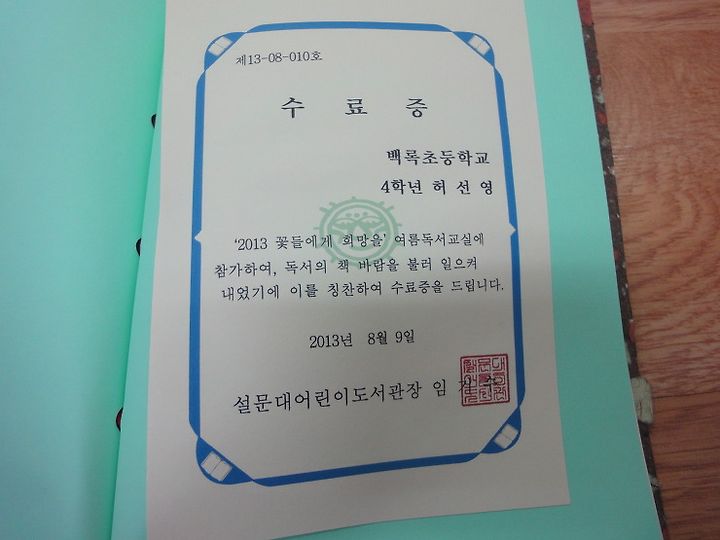 제13-08-010호
수 료 증
백록초등학교
4학년 허 선 영
'2013 꽃들에게 희망을' 여름독서교실에
참가하여, 독서의 책 바람을 불러 일으켜
내었기에 이를 칭찬하여 수료증을 드립니다.
2013년 8월 9일
설문대어린이도서관장 임